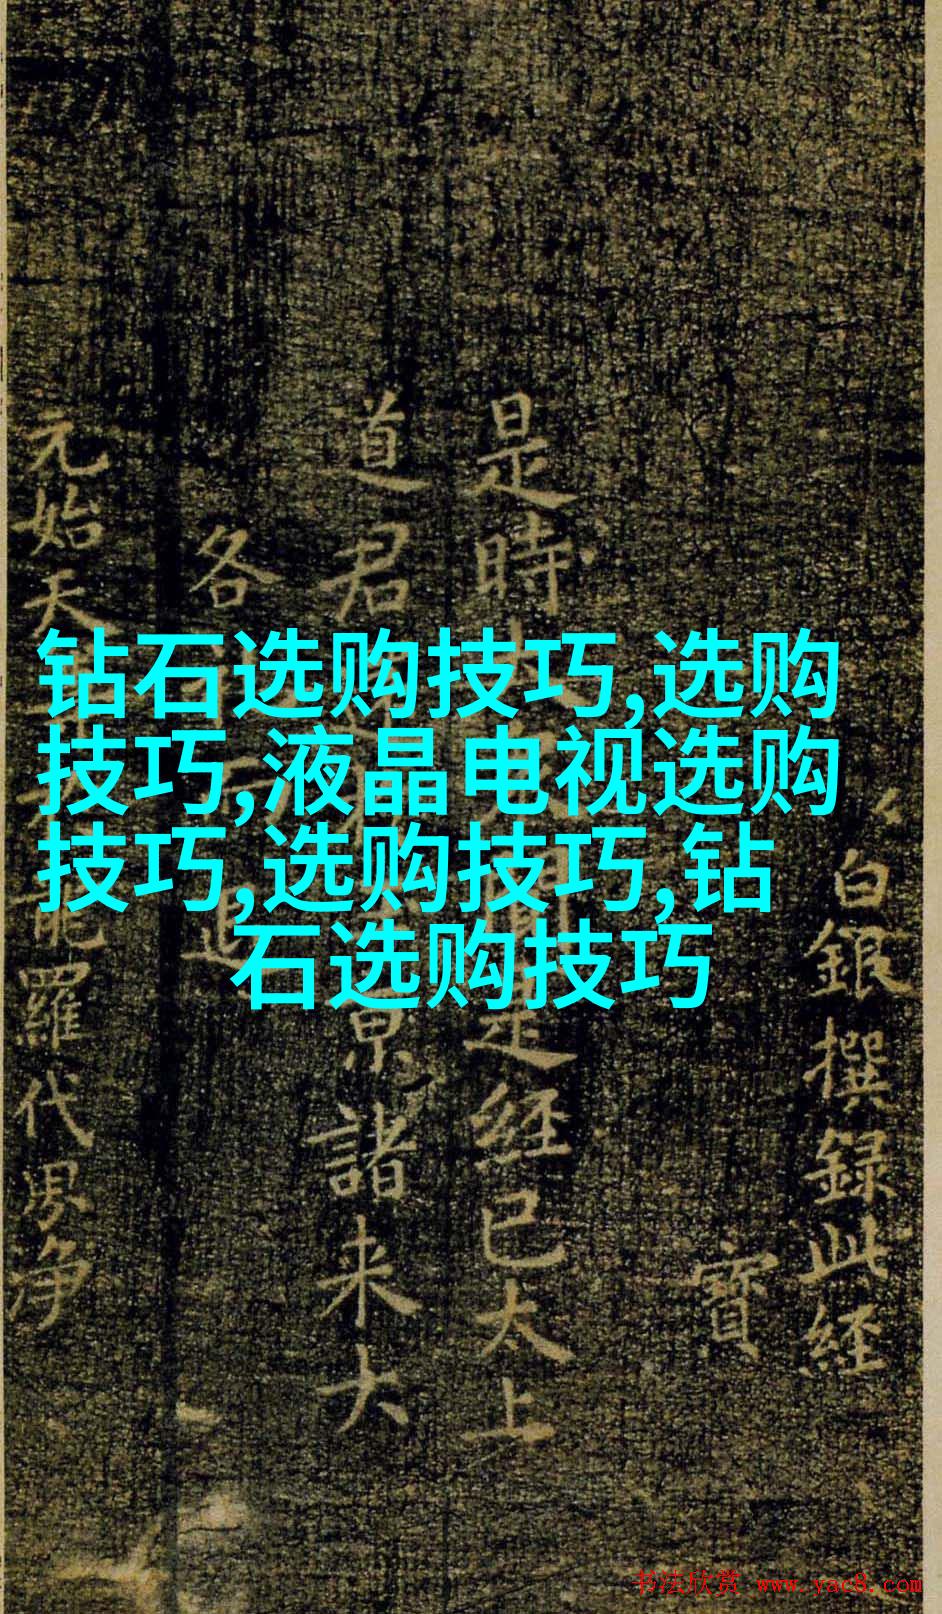 钻石选购技巧,选购
技巧,液晶电视选购
技巧,选购技巧,钻
石选购技巧
白銀撰録此経
寶
是時
是経已太上
道君
京諸来大
各
元始天
羅代界浄
书法欣赏 www.yac8.com